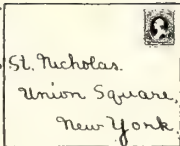 St. Nicholas.
Union Square,
New York.